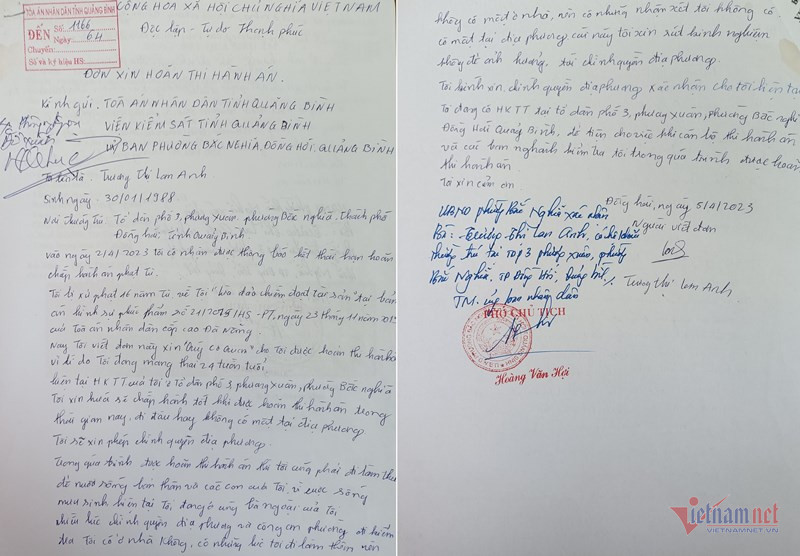 CỘNG HÒA XÃ HỘI CHỦ NGHĨA VIỆT NAM
Độc lập - Tự do Hạnh phúc
TÒA ÁN NHÂN DÂN TỈNH QUẢNG BÌNH
ĐẾN
Số: 1166
Ngày: 6/4
Chuyển:
Số và ký hiệu HS:
ĐƠN XIN HOÃN THI HÀNH ÁN.
Kính gửi: TOÀ ÁN NHÂN DÂN TỈNH QUẢNG BÌNH
VIỆN KIỂM SÁT TỈNH QUẢNG BÌNH
UỶ BAN PHƯỜNG BẮC NGHĨA, ĐỒNG HỚI, QUẢNG BÌNH
Tôi tên là Trương Thị Lan Anh
Sinh ngày: 30/01/1988
Nơi thường trú: Tổ dân phố 3, phương xuân, phường Bắc nghĩa, thành phố
Đồng hới, Tỉnh Quảng Bình
vào ngày 21/4/2023 tôi có nhận được thông báo hết thời hạn hoãn
chấp hành án phạt tù.
Tôi bị xử phạt 16 năm tù về tội "lừa đảo chiếm đoạt tài sản" tại bản
án hình sự phúc thẩm số 21/2019/HS-PT, ngày 23 tháng 11 năm
của toà án nhân dân cấp cao Đà Nẵng.
Nay tôi viết đơn này xin "Quý cơ quan" cho tôi được hoãn thi hành
vì lí do Tôi đang mang thai 24 tuần tuổi
hiện tại HKTT của tôi ở Tổ dân phố 3, phương xuân, phường Bắc nghĩa
Tôi xin hứa sẽ chấp hành tốt khi được hoãn thi hành án trong
thời gian này, đi đâu hay không có mặt tại địa phương
Tôi sẽ xin phép chính quyền địa phương.
Trong quá trình được hoãn thi hành án thì tôi cũng phải đi làm
để nuôi sống bản thân và các con của tôi, vì cuộc sống
mưu sinh hiện tại tôi đang ở cùng bà ngoại của tôi
nhiều lúc chính quyền địa phương và công an phường đi kiểm
tra tôi có ở nhà không, có những lúc tôi đi làm thêm nên
không có mặt ở nhà, nên có những nhận xét tôi không có
có mặt tại địa phương cái này tôi xin rút kinh nghiệm
không để ảnh hưởng, tới chính quyền địa phương.
Tôi kính xin, chính quyền địa phương xác nhận cho tôi hiện tại
Tôi đang có HKTT tại tổ dân phố 3, phương xuân, phường Bắc nghĩa
Đồng Hới Quảng Bình, để tiện cho việc khi cán bộ thi hành án
và các ban nghành kiểm tra tôi trong quá trình được hoãn
thi hành án
Tôi xin cảm ơn
Đồng hới, ngày 5/4/2023
Người viết đơn
UBND phường Bắc Nghĩa xác nhận
Bà: Trương Thị Lan Anh, có hộ khẩu
thường trú tại TDP 3 phương xuân, phường
Bắc Nghĩa, TP Đồng Hới, Quảng Bình
Trương Thị Lan Anh
TM. Uỷ ban nhân dân
PHÓ CHỦ TỊCH
Hoàng Văn Hội
Vietnamnet
VIETNAMNET.VN